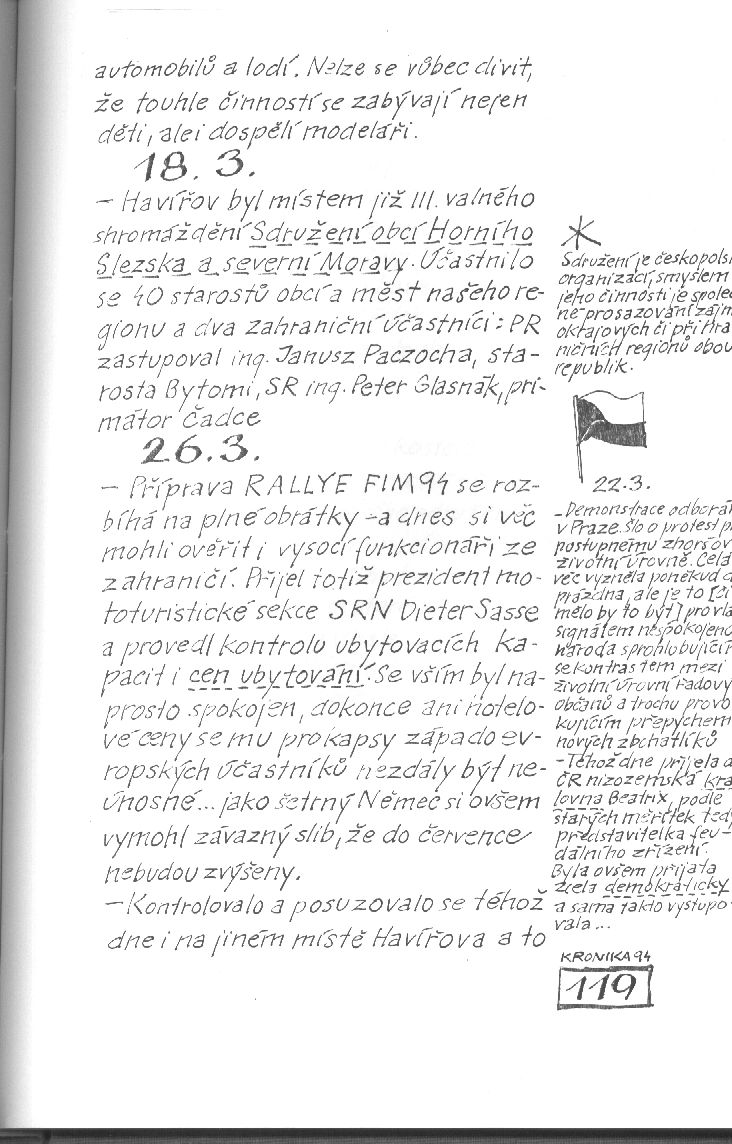 automobilů a lodí. Nelze se vůbec divit,
že touhle činností se zabývají nejen
děti, ale i dospělí modeláři.
18. 3.
– Havířov byl místem již III. valného
shromáždění Sdružení obcí Horního
Slezska a severní Moravy. Účastnilo
se 40 starostů obcí a měst našeho re-
gionu a dva zahraniční účastníci: PR
zastupoval ing. Janusz Paczocha, sta-
rosta Bytomi, SR ing. Peter Glasnák, pri-
mátor Čadce
26.3.
– Příprava RALLYE FIM94 se roz-
bíhá na plné obrátky – a dnes si věc
mohli ověřit i vysocí funkcionáři ze
zahraničí. Přijel totiž prezident mo-
toturistické sekce SRN Dieter Sasse
a provedl kontrolu ubytovacích ka-
pacit i cen ubytování. Se vším byl na-
prosto spokojen, dokonce ani hotelo-
vé ceny se mu pro kapsy západoev-
ropských účastníků nezdály být ne-
únosné... jako šetrný Němec si ovšem
vymohl závazný slib, že do července
nebudou zvýšeny.
– Kontrolovalo a posuzovalo se téhož
dne i na jiném místě Havířova a to
Sdružení je českopols
organizací, smyslem
jeho činnosti je spole
né prosazování zájm
okrajových či pří hra
ničních regionů obou
republik.
22.3.
– Demonstrace odborá
v Praze. Šlo o protest p
postupnému zhoršov
životní úrovně. Celá
věc vyzněla poněkud
prázdna, ale je to [či
mělo by to být] pro vla
signálem nespokojeno
národa s prohlubujícím
se kontrastem mezi
životní úrovní řadový
občanů a trochu provo
kujícím přepychem
nových zbohatlíků
– Téhož dne přijela d
ČR nizozemská krá
lovna Beatrix, podle
starých měřítek tedy
představitelka feu–
dálního zřízení.
Byla ovšem přijata
zcela demokraticky
a sama takto vystupo
vala...
KRONIKA 94
119